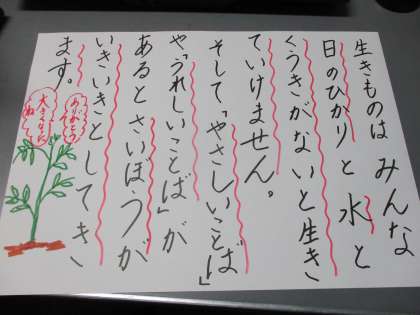 生きものは みんな
日のひかり と 水 と
くうき がないと生き
ていけません。
そして「やさしいことば」
や「うれしいことば」が
あると さいぼうが
いきいきとしてきき
ます。
ありがとう
大すきだよ